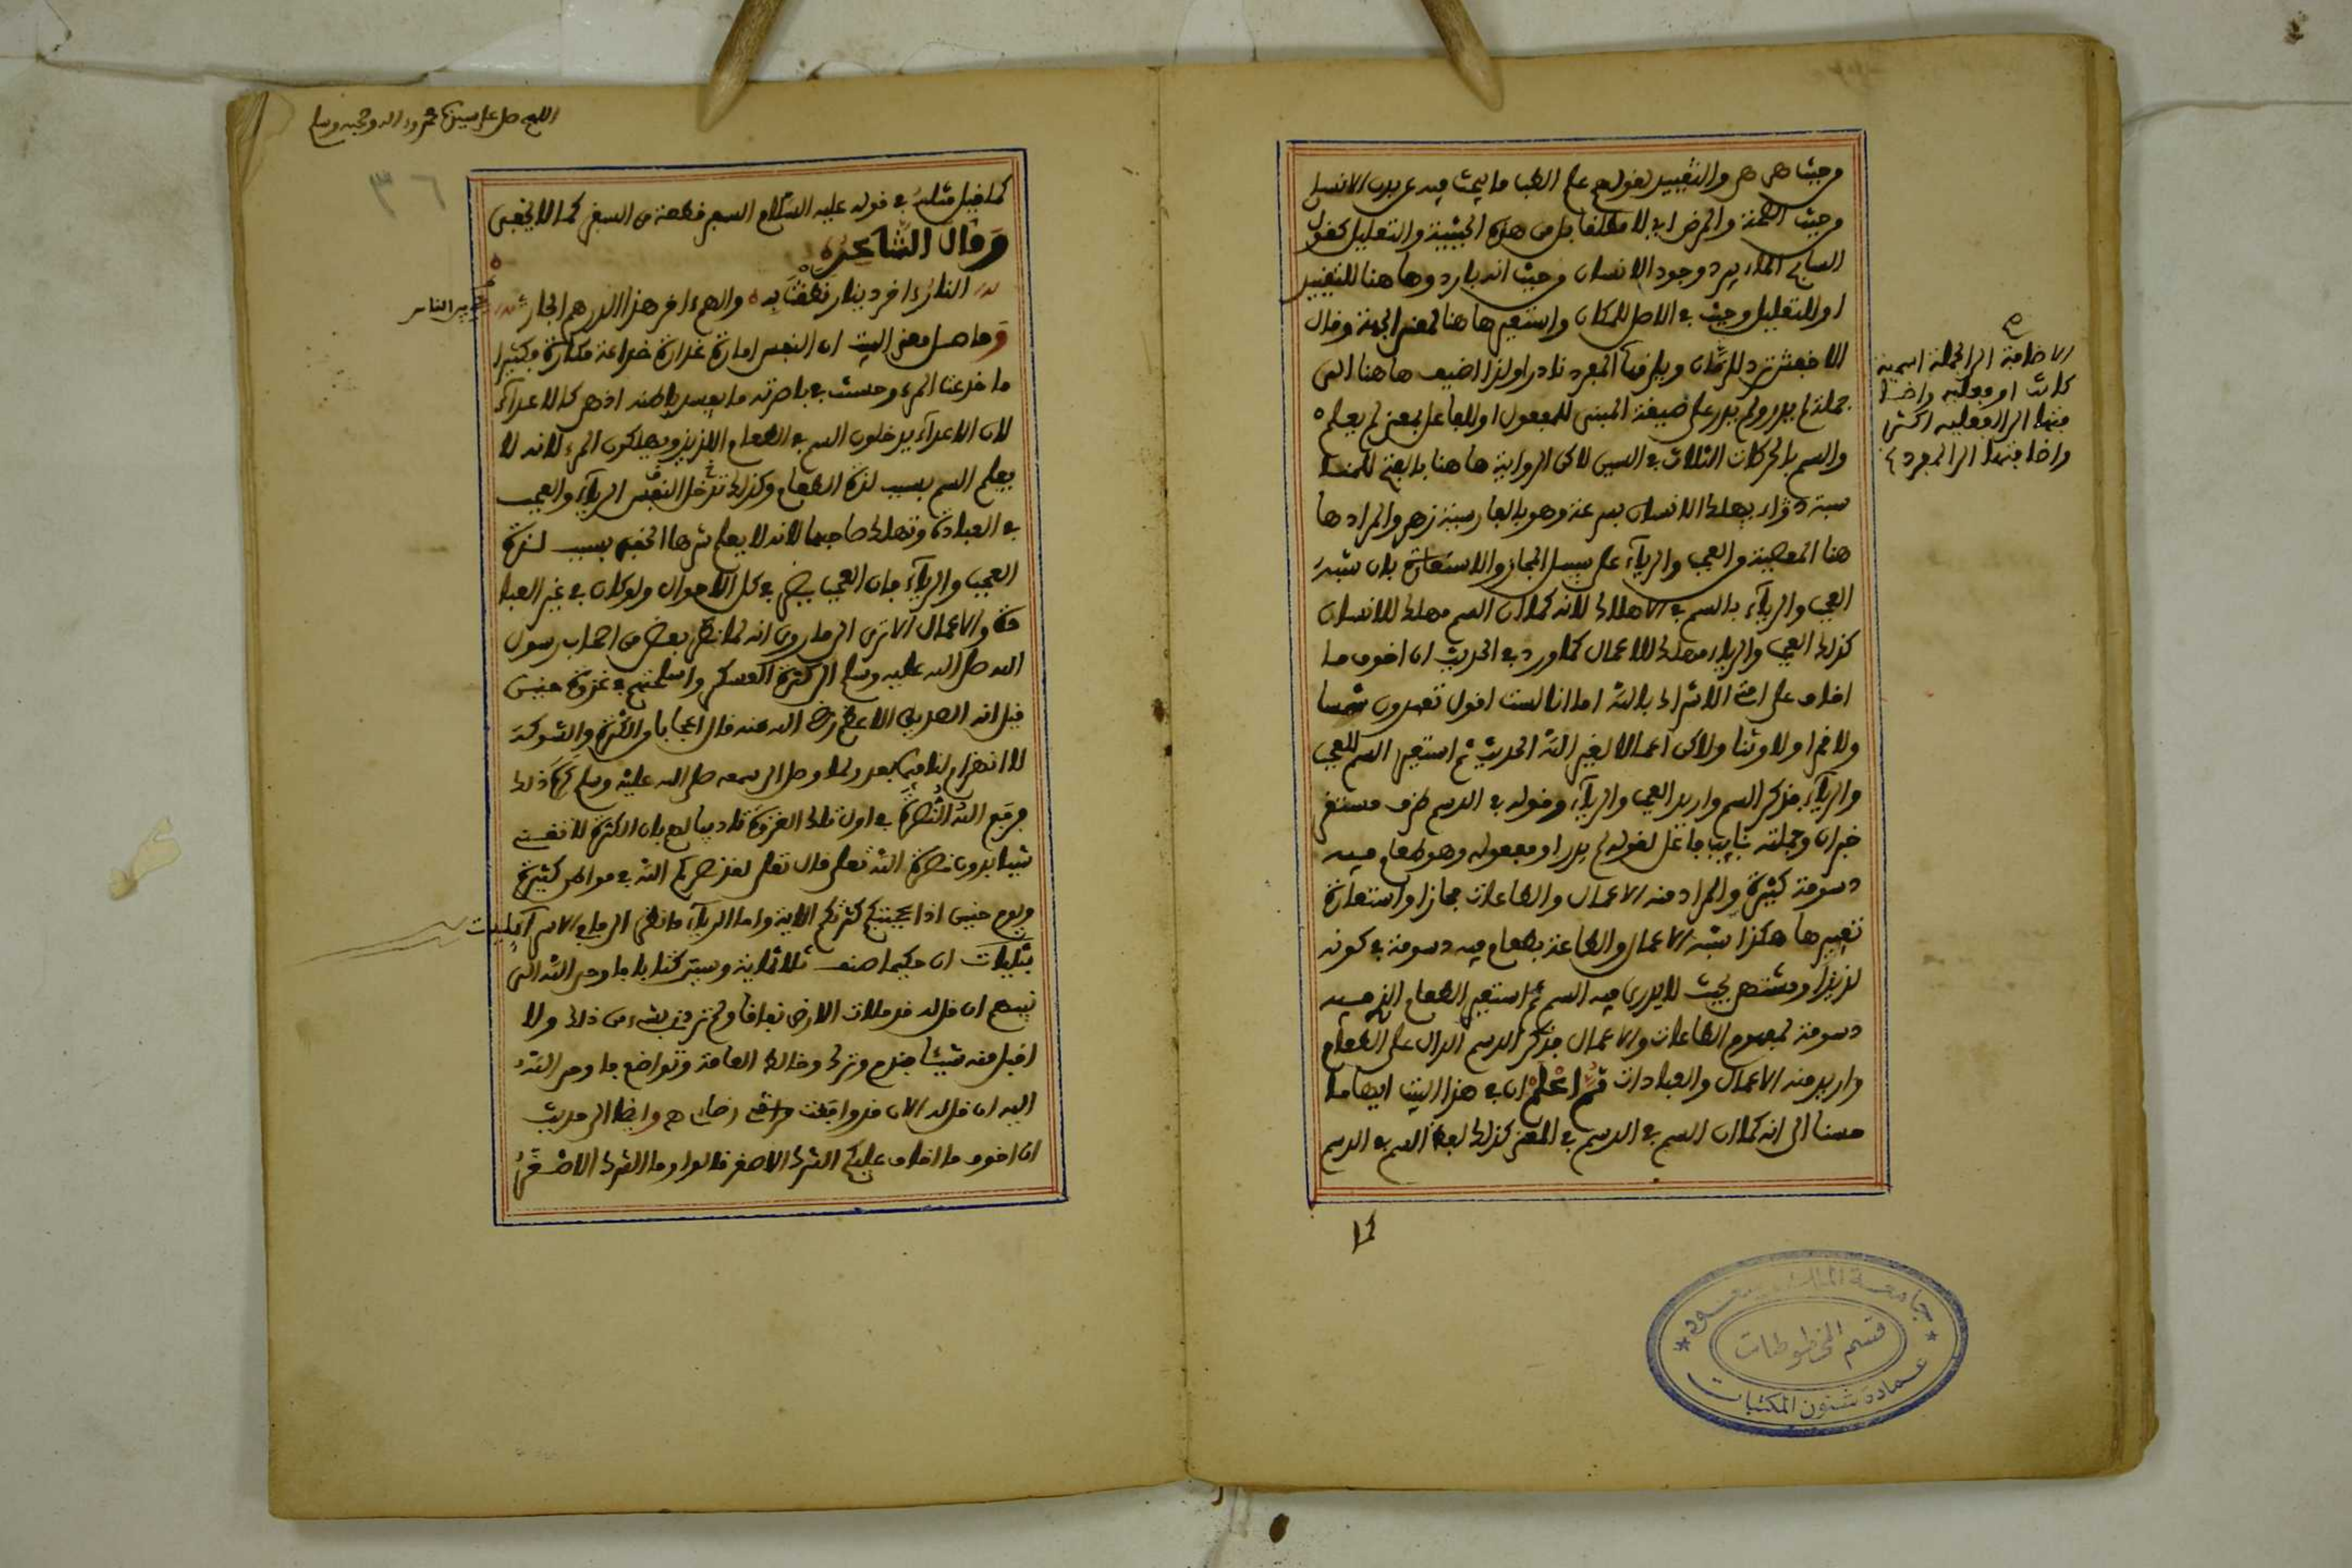 من حيث هي هي والتقييد كقولهم علم الطب ما يبحث فيه عن بدن الانسان
من حيث الصحة والمرض اي لا مطلقا بل من هذه الحيثية والتعليل كقول
الماء يبرد وجود الانسان من حيث انه بارد وها هنا للتقييد
او للتعليل وحيث في الاصل للمكان واستعير ها هنا لمعنى الجهة وقال
الاخفش ترد للزمان ويضاف الى المفرد نادرا ولذا اضيف ها هنا الى
جملة لم يدر ولم يدر على صيغة المبني للمفعول او للفاعل بمعنى لم يعلم
والسم بالحركات الثلاث في السين لاكن الرواية ها هنا بالفتح للمنا
سبة دواء يهلك الانسان بسرعة وهو بالفارسية زهر والمراد ها
هنا المعصية من العجب والرياء على سبيل المجاز والاستعارة بان شبه
العجب والرياء بالسم في الاهلاك لانه كما ان السم مهلك للانسان
كذلك العجب والرياء مهلك للاعمال كما ورد في الحديث ان اخوف ما
اخاف على امتي الاشراك بالله اما انا لست اقول تعبدون شمسا
ولا قمرا ولا وثنا ولاكن اعمالا لغير الله الحديث ثم استعير السم للعجب
والرياء فذكر السم واريد العجب والرياء وقوله في الدسم ظرف مستقر
خبر ان وجملته نايب فاعل لقوله لم يدر او مفعوله وهو طعام فيه
دسومة كثيرة والمراد منه الاعمال والطاعات مجازا واستعارة
تقريرها هكذا شبه الاعمال والطاعة بطعام فيه دسومة في كونه
لذيذا ومشتهى بحيث لا يدرى فيه السم ثم استعير الطعام الذي فيه
دسومة لمفهوم الطاعات والاعمال فذكر الدسم الدال على الطعام
واريد منه الاعمال والعبادات ثم اعلم ان في هذا البيت ايهاما
حسنا الى انه كما ان السم في الدسم في المعنى كذلك لفظ السم في الدسم
كما
صح
الاضافة الى الجملة اسمية
كانت او فعلية واضا
فتها الى الفعلية اكثر
واضافتها الى المفرد
جامعة الملك سعود
قسم المخطوطات
عمادة شئون المكتبات
اللهم صل على سيدنا محمد وءاله وصحبه وسلم
٣٦
كما قيل مثله في قوله عليه السلام السفر قطعة من السقر كما لا يخفى
وقال الشاعر
النار ءاخر دينار نطقت به والهم ءاخر هذا الدرهم الجار
وحاصل معنى البيت ان النفس امارة غدارة خداعة مكارة فكثيرا
ما خدعت المرء وحسنت في باصرته ما يفسد باطنه اذ هي كالاعداء
لان الاعداء يدخلون السم في الطعام اللذيذ ويهلكون المرء لانه لا
يعلم السم بسبب لذة الطعام وكذلك تدخل النفس الرياء والعجب
في العبادة وتهلك صاحبها لانه لا يعلم شرها الخفي بسبب لذة
العجب والرياء فان العجب يضر في كل الاحوال ولو كان في غير العبا
دة والاعمال الا ترى الى ما روي انه لما نظر بعض من اصحاب رسول
الله صلى الله عليه وسلم الى كثرة العسكر واسلحتهم في غزوة حنين
قيل انه الصديق الاعظم رضي الله عنه قال اعجابا من الكثرة والشوكة
لا انهزام لنا فيما بعد ولما وصل الى سمعه صلى الله عليه وسلم كره ذلك
فرفع الله النصرة في اول تلك الغزوة تاديبا لهم بان الكثرة لا تغني
شيئا بدون نصرة الله تعلى قال تعلى لقد نصركم الله في مواطن كثيرة
ويوم حنين اذ اعجبتكم كثرتكم الاية واما الرياء فانظر الى ما في الاسراءيليات
ان حكيما صنف ثلاثماية وستين كتابا فاوحى الله الى
نبيهم ان قل له قد ملات الارض نفاقا ولم ترد بشيء من ذلك ولا
اقبل منه شيئا فندم وترك وخالط العامة وتواضع فاوحى الله
اليه ان قل له الان قد وافقت رضاي وايضا الى حديث
ان اخوف ما اخاف عليكم الشرك الاصغر قالوا وما الشرك الاصغر